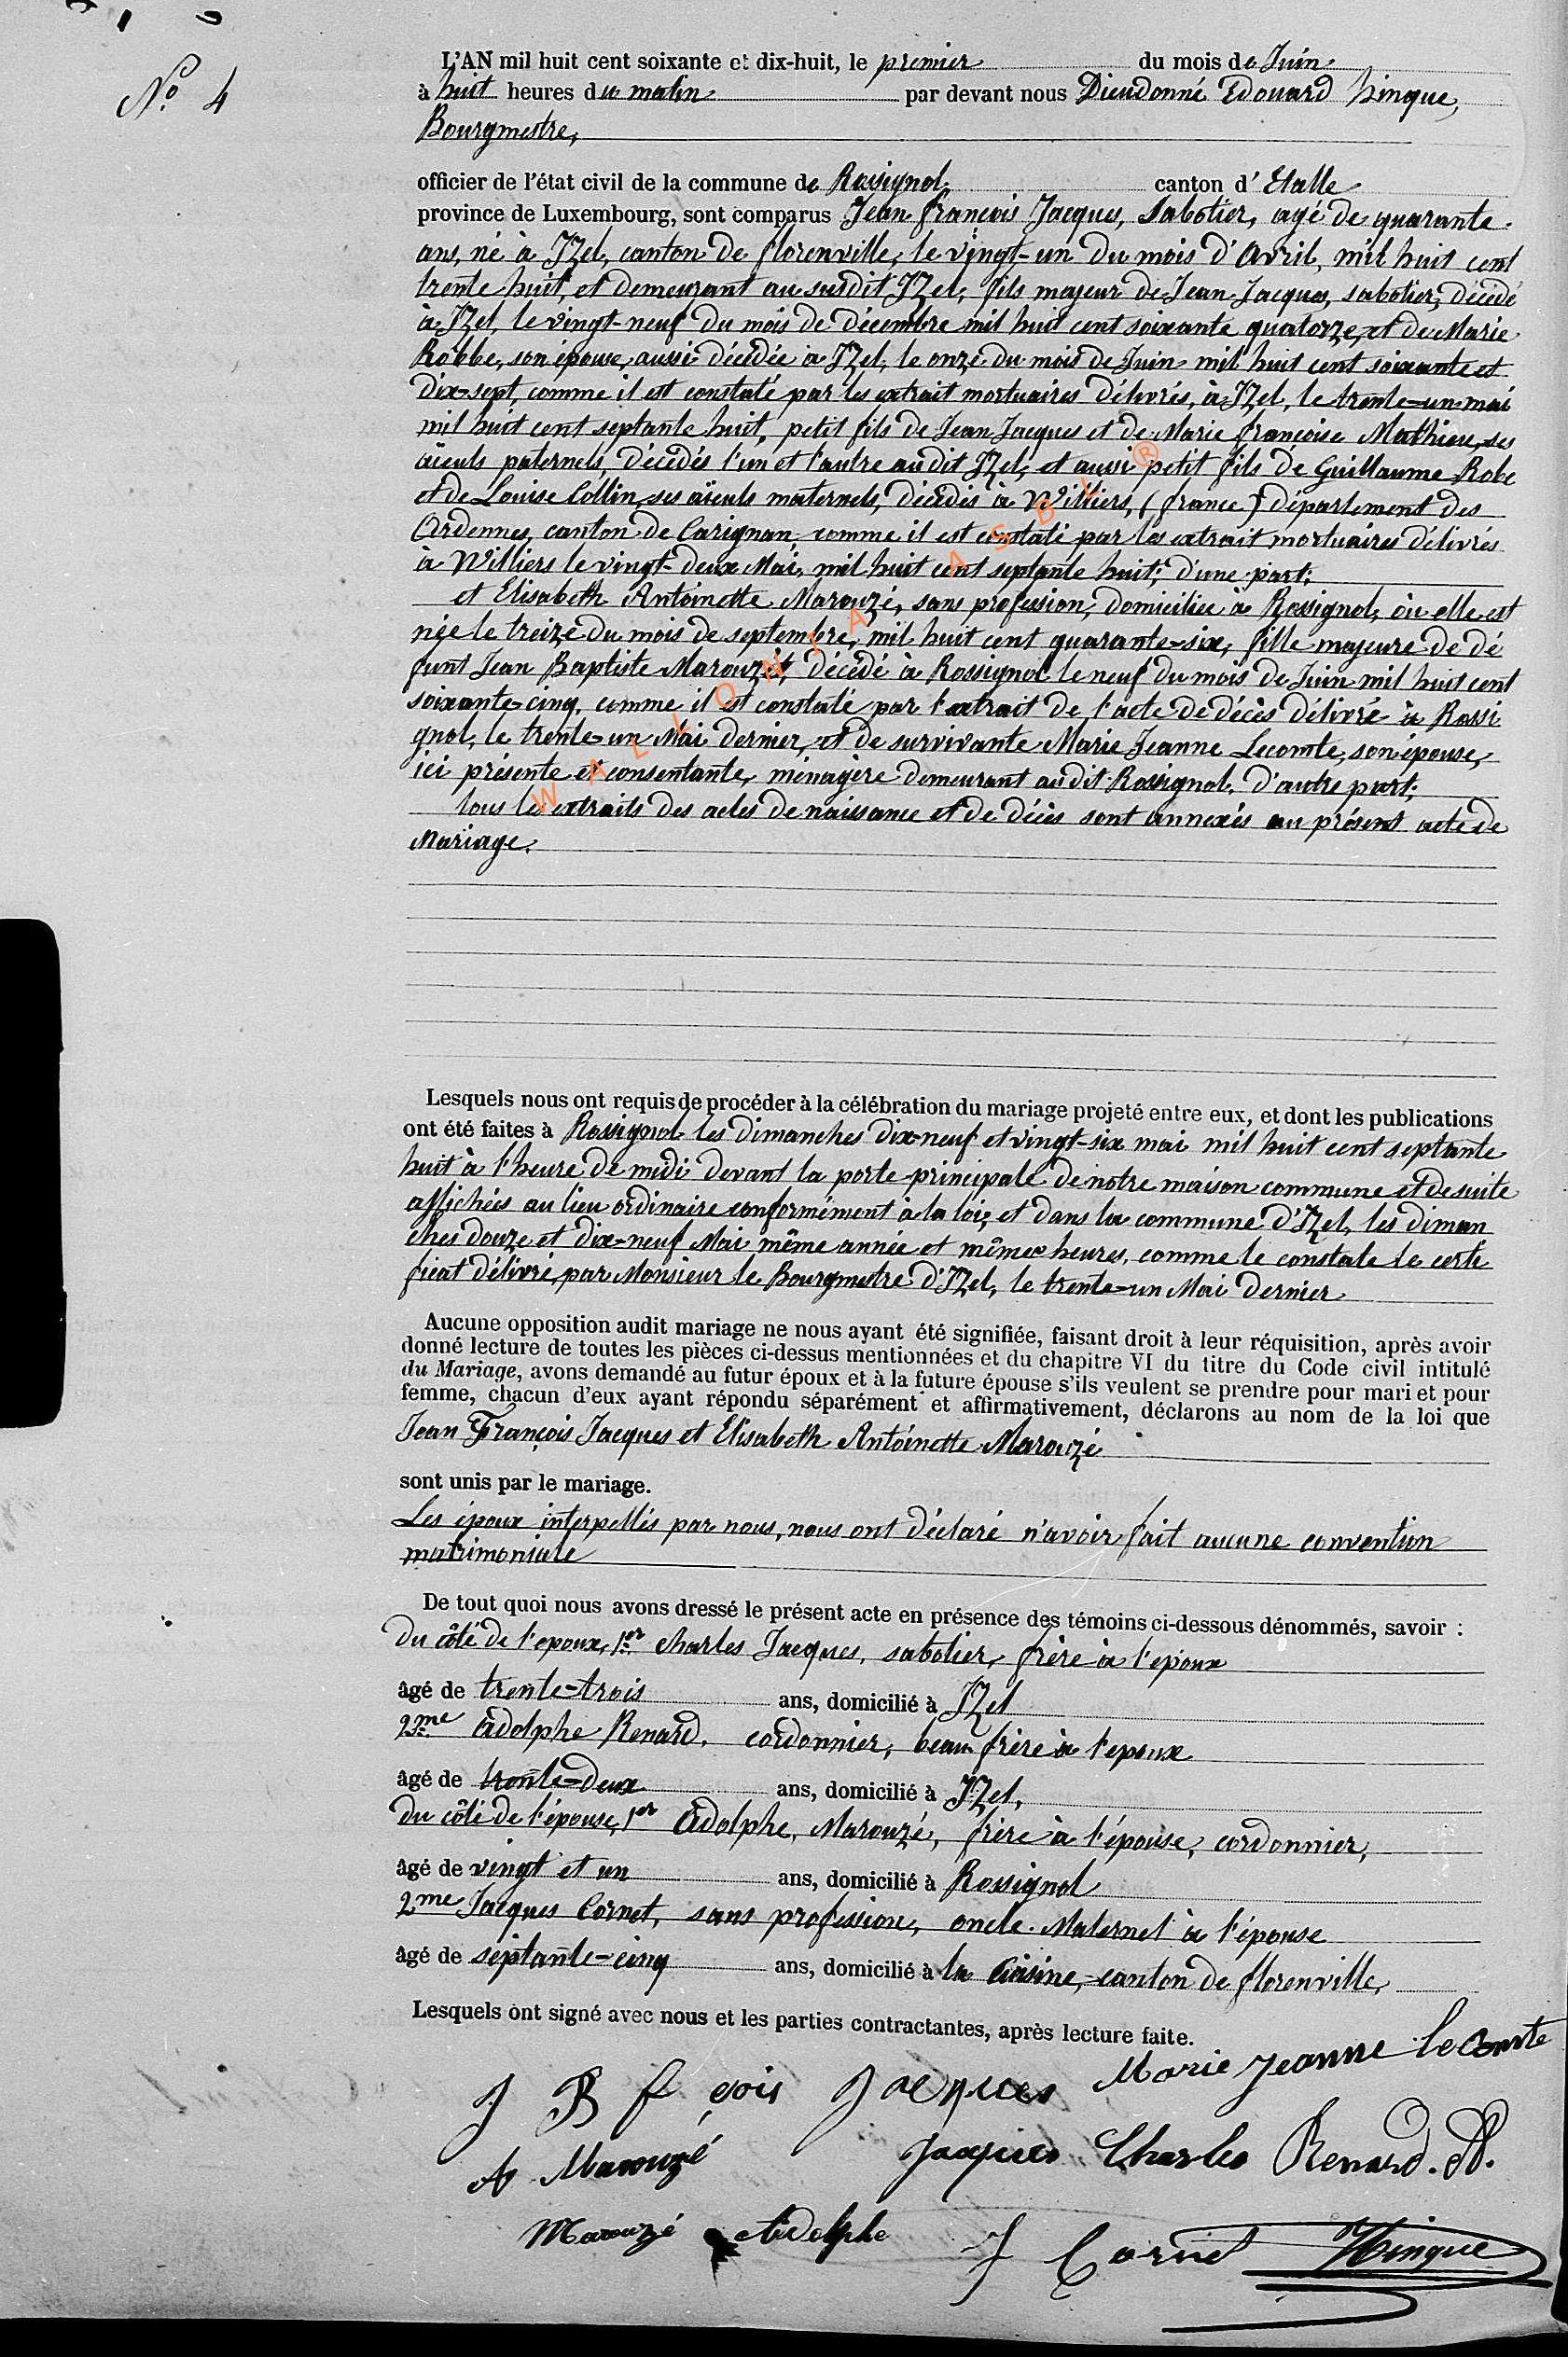 N° 4
L'AN mil huit cent soixante et dix-huit, le premier du mois de Juin
à huit heures du matin par devant nous Dieudonné Edouard Hinque,
Bourgmestre,
officier de l'état civil de la commune de Rossignol, canton d' Etalle
province de Luxembourg, sont comparus Jean François Jacques, Sabotier, agé de quarante
ans, né à Izel, canton de florenville, le vingt-un du mois d'Avril, mil huit cent
trente huit, et demeurant au susdit Izel, fils majeur de Jean Jacques, sabotier, décédé
à Izel, le vingt-neuf du mois de décembre mil huit cent soixante quatorze, et de Marie
Robbe, son épouse, aussi décédée à Izel, le onze du mois de Juin mil huit cent soixante et
dix-sept, comme il est constaté par les extrait mortuaires délivrés, à Izel, le trente-un mai
mil huit cent septante huit, petit fils de Jean Jacques et de Marie françoise Mathieu, ses
aïeuls paternels, décédés l'un et l'autre audit Izel, et aussi petit fils de Guillaume Robe
et de Louise Collin, ses aïeuls maternels, décédés à Williers, (france) département des
Ardennes, canton de Carignan, comme il est constaté par les extrait mortuaires délivrés
à Williers le vingt-deux Mai, mil huit cent septante huit; d'une part;
et Elisabeth Antoinette Marouzé, sans profession, domiciliée à Rossignol, où elle est
née le treize du mois de septembre, mil huit cent quarante-six, fille majeure de dé
funt Jean Baptiste Marouzé, décédé à Rossignol le neuf du mois de Juin mil huit cent
soixante-cinq, comme il est constaté par l'extrait de l'acte de décès délivré à Rossi
gnol, le trente-un Mai dernier, et de survivante Marie Jeanne Lecomte, son épouse,
ici présente et consentante, ménagère demeurant audit Rossignol, d'autre part;
tous les extraits des actes de naissance et de décès sont annexés au présent acte de
Mariage.
WALLONIA ASBL ®
Lesquels nous ont requis de procéder à la célébration du mariage projeté entre eux, et dont les publications
ont été faites à Rossignol les dimanches dix-neuf et vingt-six mai mil huit cent septante
huit à l'heure de midi devant la porte principale de notre maison commune et de suite
affichées au lieu ordinaire conformément à la loi, et dans la commune d'Izel, les diman
ches douze et dix-neuf Mai même année et mêmes heures, comme le constate le certi
ficat délivré, par Monsieur le Bourgmestre d'Izel, le trente-un Mai dernier
Aucune opposition audit mariage ne nous ayant été signifiée, faisant droit à leur réquisition, après avoir
donné lecture de toutes les pièces ci-dessus mentionnées et du chapitre VI du titre du Code civil intitulé
du Mariage, avons demandé au futur époux et à la future épouse s'ils veulent se prendre pour mari et pour
femme, chacun d'eux ayant répondu séparément et affirmativement, déclarons au nom de la loi que
Jean François Jacques et Elisabeth Antoinette Marouzé
sont unis par le mariage.
Les époux interpellés par nous, nous ont déclaré n'avoir fait aucune convention
matrimoniale
De tout quoi nous avons dressé le présent acte en présence des témoins ci-dessous dénommés, savoir :
Du côté de l'epoux, 1er Charles Jacques, sabotier, frère à l'epoux
âgé de trente-trois ans, domicilié à Izel
2me Adolphe Renard, cordonnier, beau frère à l'epoux
âgé de trente-deux ans, domicilié à Izel,
du côté de l'épouse, 1er Adolphe, Marouzé, frère à l'épouse, cordonnier,
âgé de vingt et un ans, domicilié à Rossignol
2me Jacques Cornet, sans profession, oncle Maternel à l'épouse
âgé de septante-cinq ans, domicilié à la Cuisine, canton de florenville,
Lesquels ont signé avec nous et les parties contractantes, après lecture faite.
Marie Jeanne lecomte
J B f çois Jacques
A Marouzé Jacques Charles Renard. A.
Marouzé Adolphe J Cornet Hinque